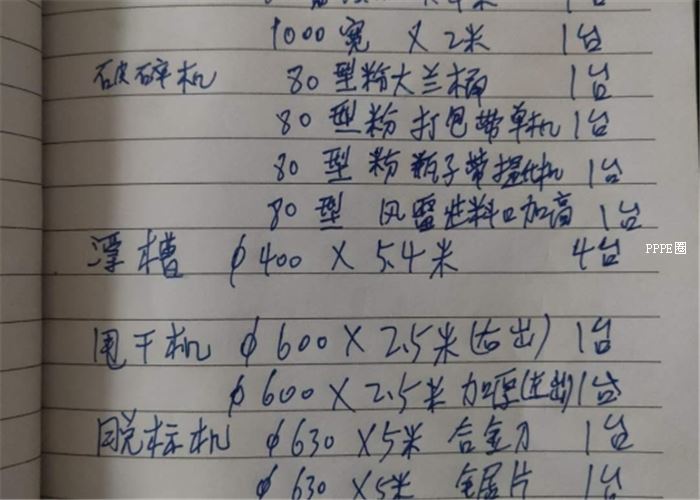 1000宽 X 2米 1台
破碎机 80型粉大兰桶 1台
80型粉 打包带单机 1台
80型 粉 瓶子带提升机 1台
80型 风雷进料口加高 1台
漂槽 φ400 X 5.4米 4台
PPPE圈
甩干机 φ600 X 2.5米(右出) 1台
φ600 X 2.5米 加厚(左出) 1台
脱标机 φ630 X 5米 合金刀 1台
φ630 X 5米 1台